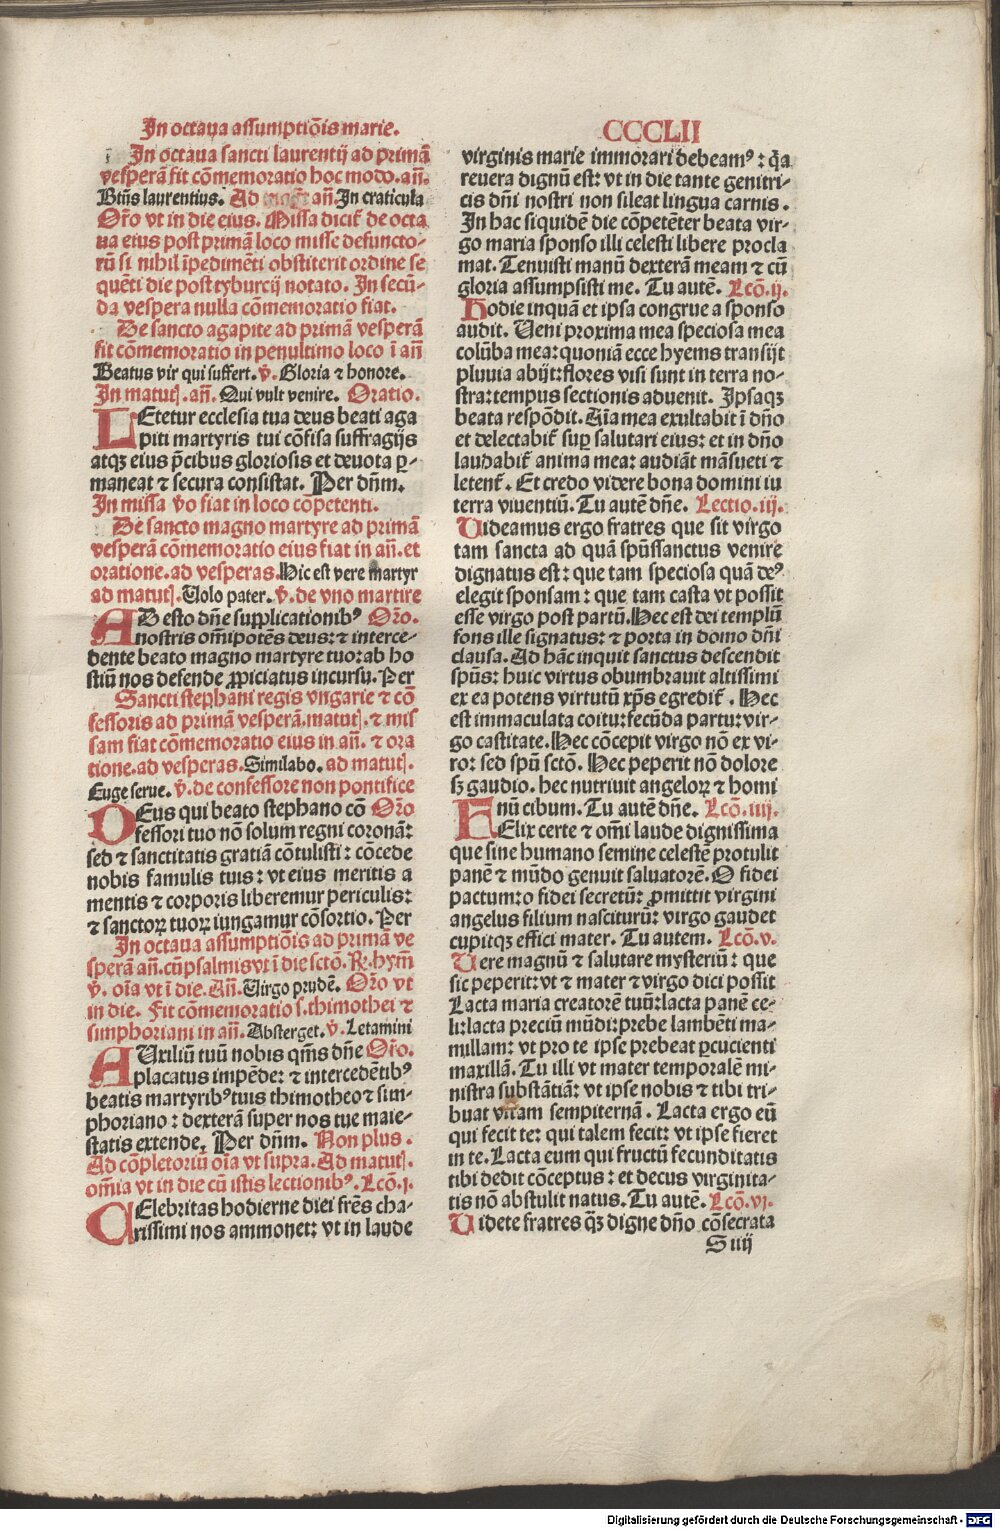 In octaua assumptiõis marie.
In octaua sancti laurentij ad primã
vesperã fit cõmemoratio hoc modo. añ.
Btũs laurentius. Ad añ. In craticula
Oro vt in die eius. Missa dicit̃ de octa
ua eius post primã loco misse defuncto-
rũ si nihil ĩpedimẽti obstiterit ordine se
quẽti die post tyburcij notato. In secũ-
da vespera nulla cõmemoratio fiat.
De sancto agapite ad primã vesperã
fit cõmemoratio in penultimo loco ĩ añ
Beatus vir qui suffert. v̉. Gloria ⁊ honore.
In matuť. añ. Qui vult venire. Oratio.
LEtetur ecclesia tua deus beati aga
piti martyris tui cõfisa suffragijs
atqꝫ eius p̃cibus gloriosis et deuota ꝑ-
maneat ⁊ secura consistat. Per dñm.
In missa v̉o fiat in loco cõpetenti.
De sancto magno martyre ad primã
vesperã cõmemoratio eius fiat in añ. et
oratione. ad vesperas. Hic est vere martyr
ad matuť. Uolo pater. v̉. de vno martire
AB esto dñe supplicationibꝰ Oro.
nostris om̃ipotẽs deus: ⁊ interce-
dente beato magno martyre tuo: ab ho
stiũ nos defende ꝓpiciatus incursu. Per
Sancti stephani regis vngarie ⁊ cõ
fessoris ad primã vesperã. matuť. ⁊ mis
sam fiat cõmemoratio eius in añ. ⁊ ora
tione. ad vesperas. Similabo. ad matuť.
Euge serue. v̉. de confessore non pontifice
DEus qui beato stephano cõ Oro
fessori tuo nõ solum regni coronã:
sed ⁊ sanctitatis gratiã cõtulisti: cõcede
nobis famulis tuis: vt eius meritis a
mentis ⁊ corporis liberemur periculis:
⁊ sanctoꝝ tuoꝝ iungamur cõsortio. Per
In octaua assumptiõis ad primã ve
sperã añ. cũ psalmis vt ĩ die sctõ. R̃. hym̃
v̉. oĩa vt ĩ die. Añ. Uirgo prudẽ. Oro vt
in die. Fit cõmemoratio s. thimothei ⁊
simphoriani in añ. Absterget. v̉. Letamini
AUxiliũ tuũ nobis qm̃s dñe Oro.
placatus impẽde: ⁊ intercedẽtibꝰ
beatis martyribꝰ tuis thimotheo ⁊ sim-
phoriano: dexterã super nos tue maie-
statis extende. Per dñm. Non plus.
Ad cõpletoriũ oĩa vt supra. Ad matuť.
om̃ia vt in die cũ istis lectionibꝰ. Lcõ. j.
CElebritas hodierne diei frẽs cha-
rissimi nos ammonet: vt in laude
CCCLII
virginis marie immorari debeamꝰ: q̃a
reuera dignũ est: vt in die tante genitri-
cis dñi nostri non sileat lingua carnis.
In hac siquidẽ die cõpetẽter beata vir-
go maria sponso illi celesti libere procla
mat. Tenuisti manũ dexterã meam ⁊ cũ
gloria assumpsisti me. Tu autẽ. Lcõ. ij.
Hodie inquã et ipsa congrue a sponso
audit. Ueni proxima mea speciosa mea
colũba mea: quoniã ecce hyems transijt
pluuia abijt: flores visi sunt in terra no-
stra: tempus sectionis aduenit. Ipsaqꝫ
beata respõdit. Aĩa mea exultabit ĩ dño
et delectabit̃ suꝑ salutari eius: et in dño
laudabit̃ anima mea: audiãt mãsueti ⁊
letent̃. Et credo videre bona domini in
terra viuentiũ. Tu autẽ dñe. Lectio. iij.
Uideamus ergo fratres que sit virgo
tam sancta ad quã spũssanctus venire
dignatus est: que tam speciosa quã deꝰ
elegit sponsam: que tam casta vt possit
esse virgo post partũ. Hec est dei templũ
fons ille signatus: ⁊ porta in domo dñi
clausa. Ad hãc inquit sanctus descendit
spũs: huic virtus obumbrauit altissimi
ex ea potens virtutũ xp̃s egredit̃. Hec
est immaculata coitu: fecũda partu: vir-
go castitate. Hec cõcepit virgo nõ ex vi-
ro: sed spũ sctõ. Hec peperit nõ dolore
sꝫ gaudio. hec nutriuit angeloꝝ ⁊ homi
nũ cibum. Tu autẽ dñe. Lcõ. iiij.
FElix certe ⁊ om̃i laude dignissima
que sine humano semine celestẽ protulit
panẽ ⁊ mũdo genuit saluatorẽ. O fidei
pactum: o fidei secretũ: ꝓmittit virgini
angelus filium nasciturũ: virgo gaudet
cupitqꝫ effici mater. Tu autem. Lcõ. v.
Uere magnũ ⁊ salutare mysteriũ: que
sic peperit: vt ⁊ mater ⁊ virgo dici possit
Lacta maria creatorẽ tuũ: lacta panẽ ce-
li: lacta preciũ mũdi: prebe lambẽti ma-
millam: vt pro te ipse prebeat ꝑcucienti
maxillã. Tu illi vt mater temporalẽ mi-
nistra substãtiã: vt ipse nobis ⁊ tibi tri-
buat vitam sempiternã. Lacta ergo eũ
qui fecit te: qui talem fecit: vt ipse fieret
in te. Lacta eum qui fructũ fecunditatis
tibi dedit cõceptus: et decus virginita-
tis nõ abstulit natus. Tu autẽ. Lcõ. vj.
Uidete fratres qꝫ digne dño cõsecrata
S iiij
Digitalisierung gefördert durch die Deutsche Forschungsgemeinschaft - DFG